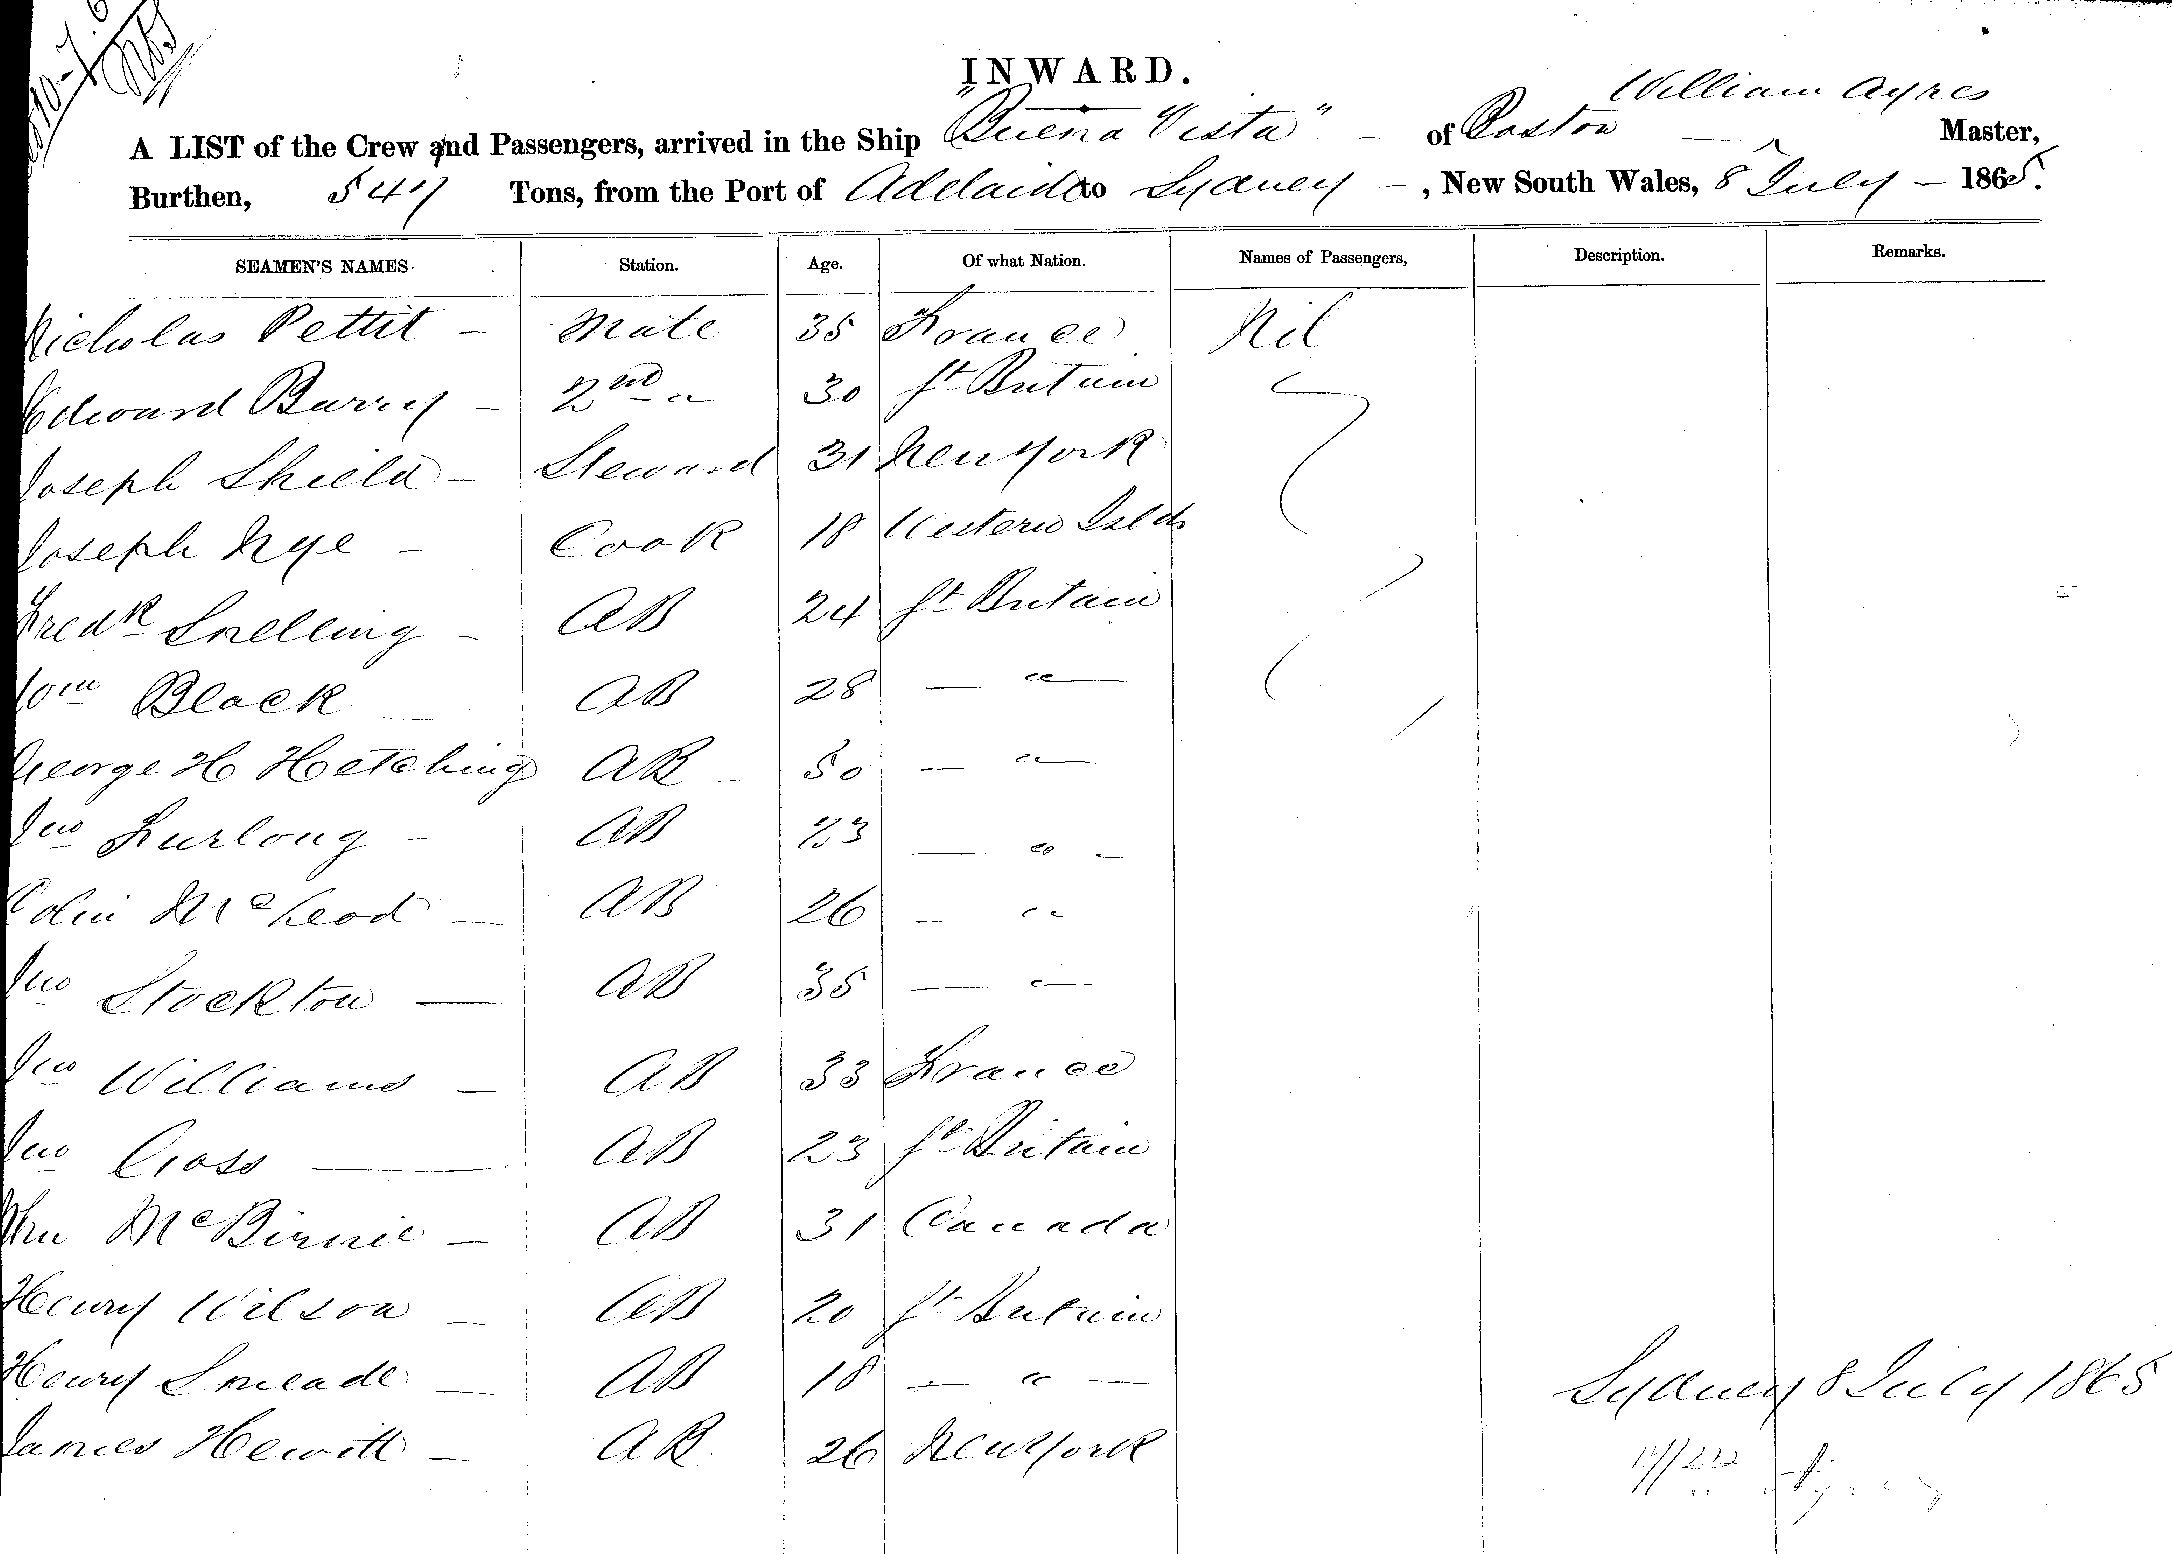 INWARD.
William Ayres
A LIST of the Crew and Passengers, arrived in the Ship "Buena Vista" - of Boston - Master,
Burthen, 547 Tons, from the Port of Adelaide to Sydney - , New South Wales, 8 July - 1865.
SEAMEN'S NAMES. Station. Age. Of what Nation. Names of Passengers, Description. Remarks.
Nicholas Pettit - Mate 35 France Nil
Edward Barry - 2nd " 30 Gt Britain
Joseph Shield - Steward 31 New York
Joseph Nye - Cook 18 Western Islds
Fredk Snelling - AB 24 Gt Britain
Wm Black AB 28 - " -
George H Hetching AB 50 - " -
Jno Furlong - AB 23 - " -
Colin McLeod - AB 26 - "
Jno Stockton - AB 35 - " -
Jno Williams - AB 33 France
Jno Cross - AB 23 Gt Britain
Wm McBirnie - AB 31 Canada
Henry Wilson - AB 20 Gt Britain
Henry Smeade - AB 18 - " -
Sydney 8 July 1865
James Hewitt - AB 26 New York